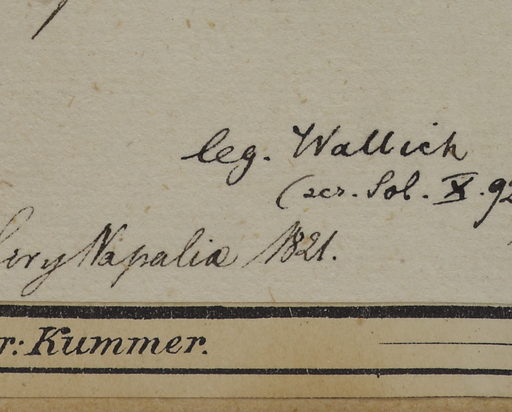 leg. Wallich
(scr. Sol. X. 92
Napalia 1821.
r: Kummer.